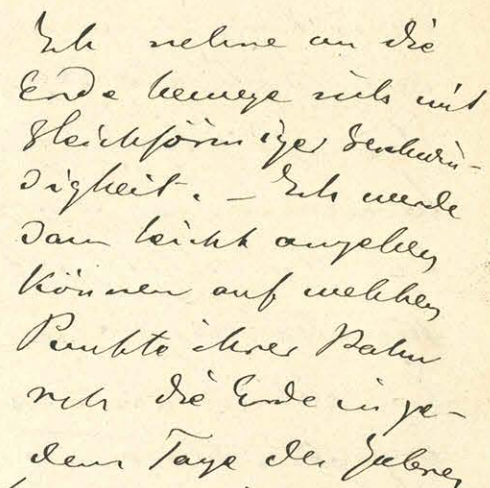 Ich nehme an die
Erde bewege sich mit
gleichförmiger Geschwin-
digkeit. – Ich werde
dann leicht angeben
können auf welchen
Punkte ihrer Bahn
sich die Erde in je-
dem Tage des Jahres